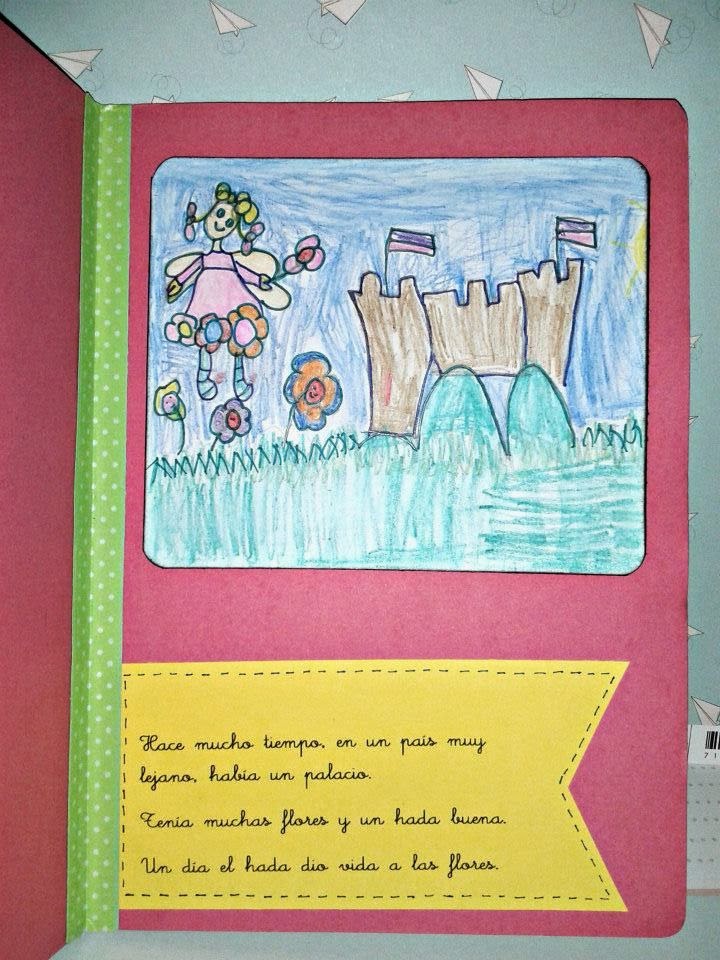 Hace mucho tiempo, en un país muy
lejano, había un palacio.
Tenía muchas flores y un hada buena.
Un día el hada dio vida a las flores.
71